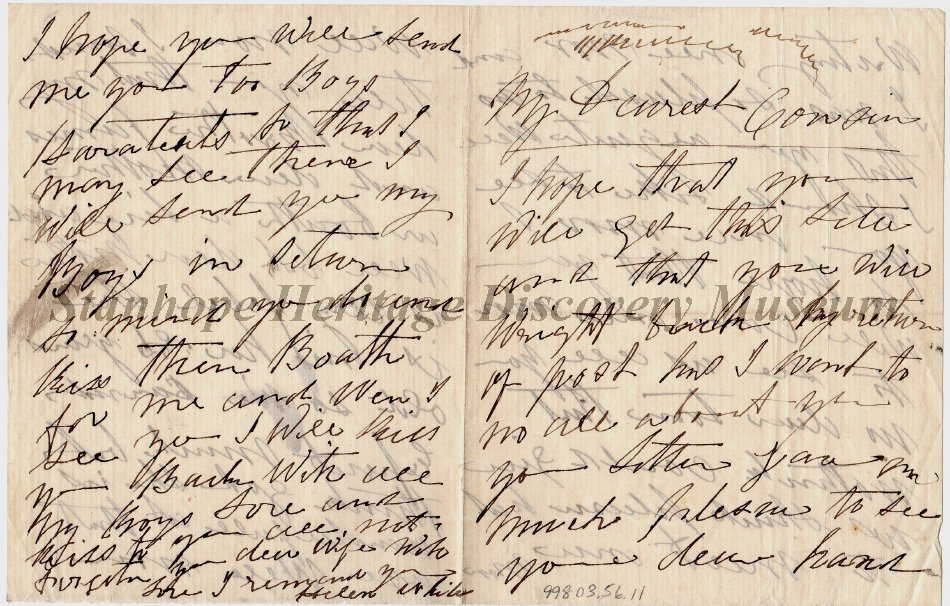 My Dearest Cousin
I hope that you
Will get this Letter
and that you Will
Wright back by return
of post has I Want to
no all about you
you Letter gave me
much plesur to see
your dear hand
I hope you Will send
me you Too Boys
so that I
may see them I
Will send you my
Boys in return
so much you
kiss them Boath
for me and Wen I
see you I Will kiss
you Back With all
My Boys Love and
kiss to you all not
forgotn you dear Wife With
Love I remand your
Helen White
Stanhope Heritage Discovery Museum
998.03.56.11